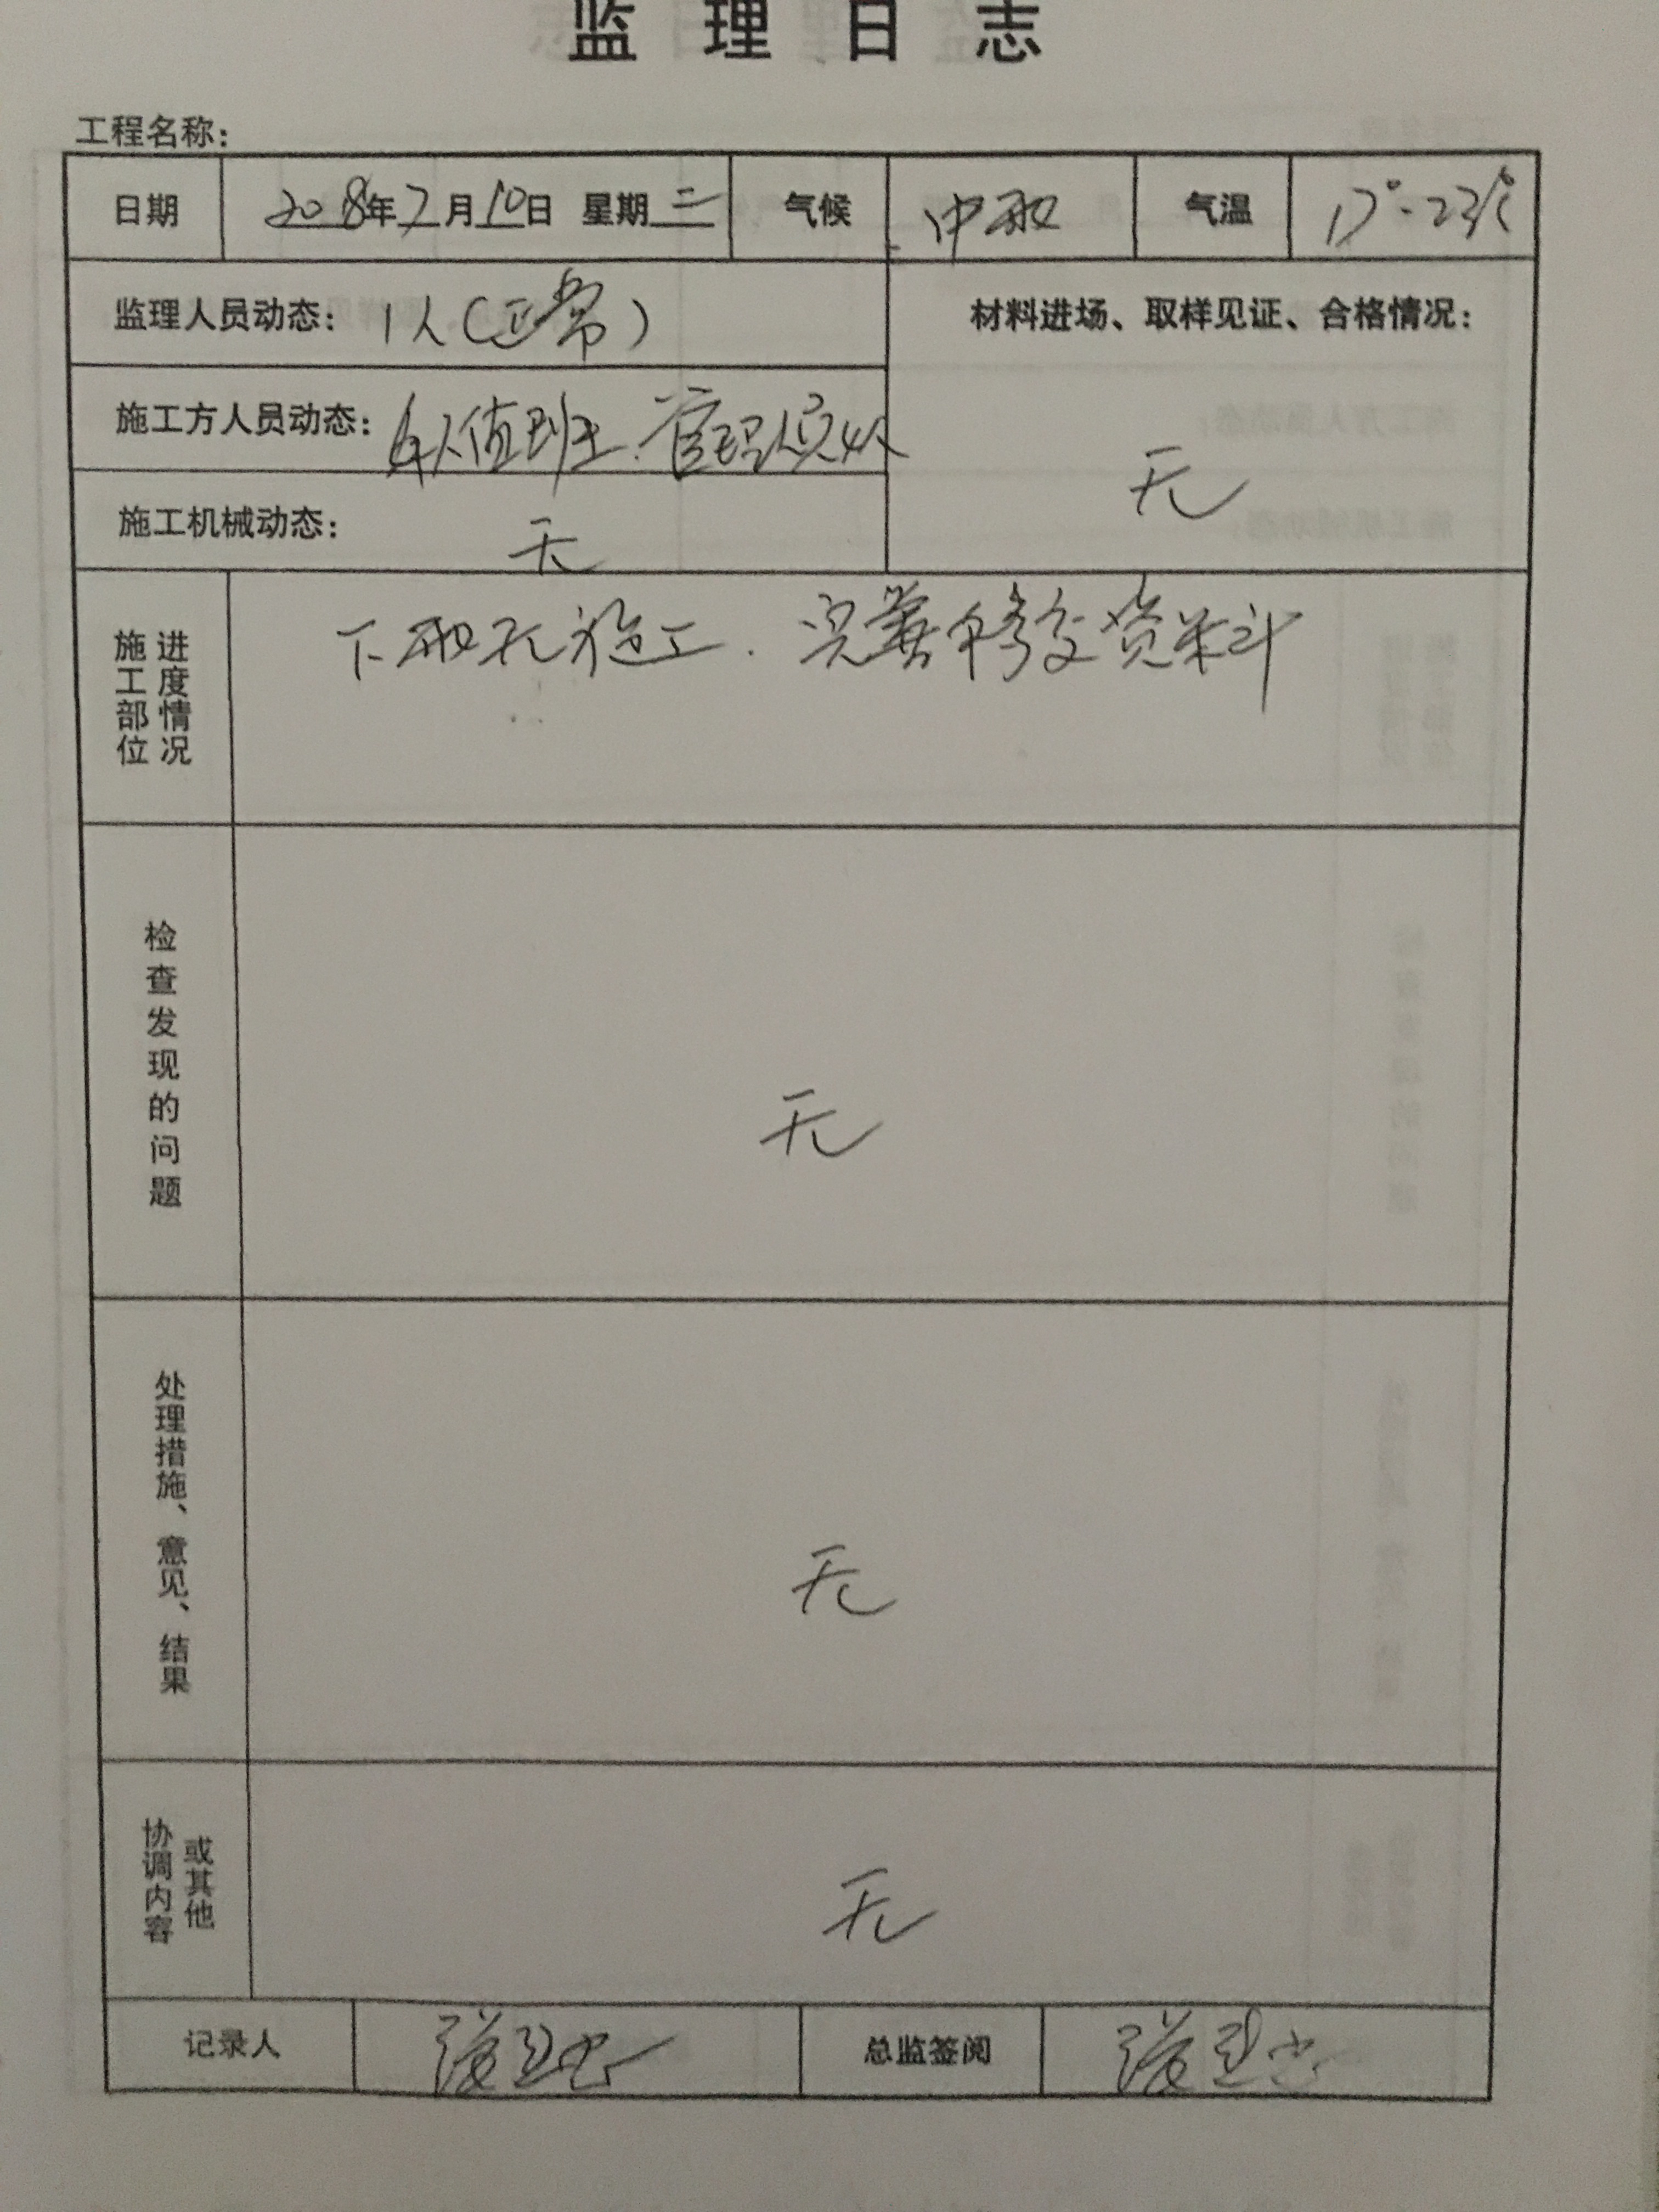 监理日志
工程名称：
日期 2018年7月10日 星期二 气候 中雨 气温 17°-23℃
监理人员动态：1人（正常） 材料进场、取样见证、合格情况：
施工方人员动态：值班.管理人员
无
施工机械动态：无
施工部位进度情况 下雨无施工.完善移交资料
检查发现的问题 无
处理措施、意见、结果 无
协调内容或其他 无
记录人 总监签阅